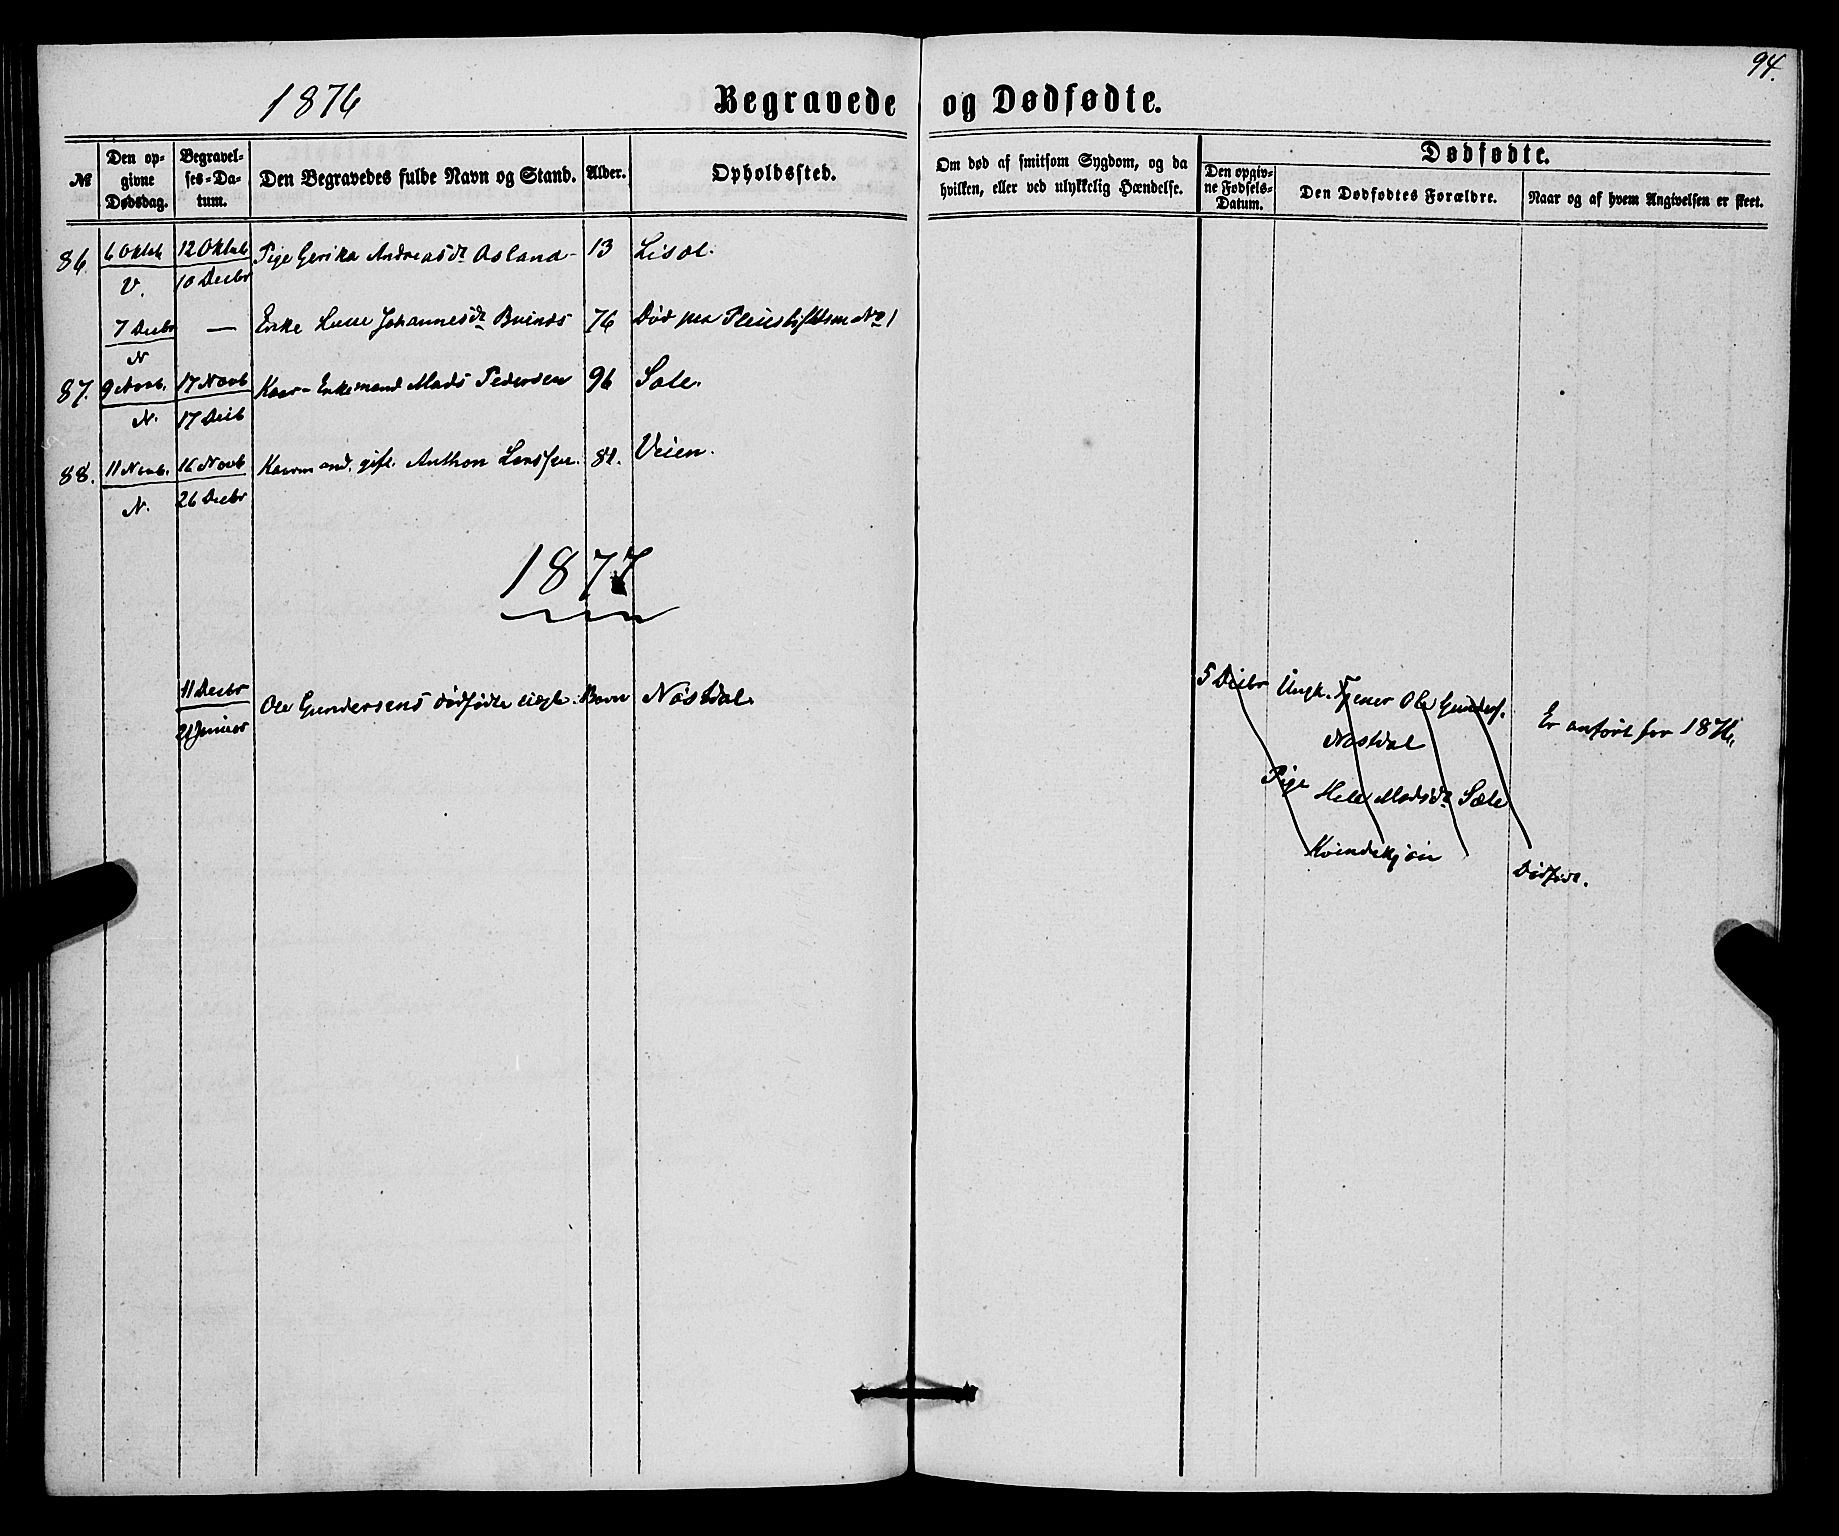 94.
1876
Begravede og Dødfødte.
№
Den op-
givne
Dødsdag.
Begravel-
ses-Da-
tum.
Den Begravedes fulde Navn og Stand.
Alder.
Opholdssted.
Om død af smitsom Sygdom, og da
hvilken, eller ved ulykkelig Hændelse.
Dødfødte.
Den opgiv-
ne Fødsels-
Datum.
Den Dødfødtes Forældre.
Naar og af hvem Angivelsen er skeet.
86. 6 Oktob 12 Oktob Pige Gerika Andreasdr Asland 13
V. 10 Decbr
7 Decbr — Enke Johannesdr 76 Død paa No 1
N
87. 9 Novb. 17 Novb Kaar-Enkemand Mads Pedersen 96 Sæle.
N. 17 Decb
88. 11 Novb. 16 Novb Kaarmand, gift. Anthon 81. Veien.
N. 26 Decbr
1877
11 Decbr Ole Gundersens dødfødte uægte Barn Nøstdal
21 Januar
5 Decbr Ungk. Tjener Ole Gunders.
Nøstdal
Er anført for 1876.
Pige Madsdr Sæle
Kvindekjøn
Dødfødt.